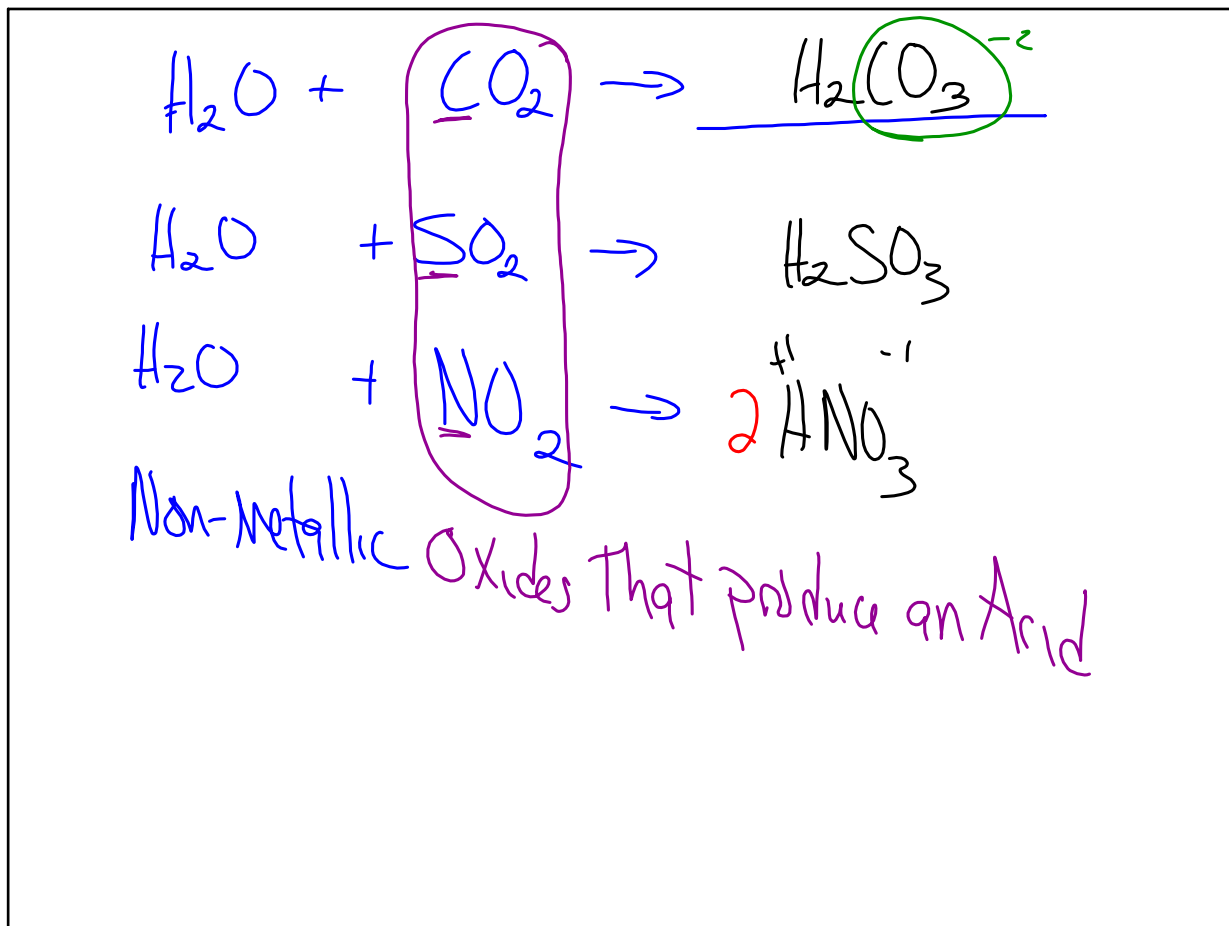 H₂O + CO₂ → H₂CO₃ ⁻²
H₂O + SO₂ → H₂SO₃
+1 -1
H₂O + NO₂ → 2HNO₃
Non-Metallic Oxides That produce an Acid